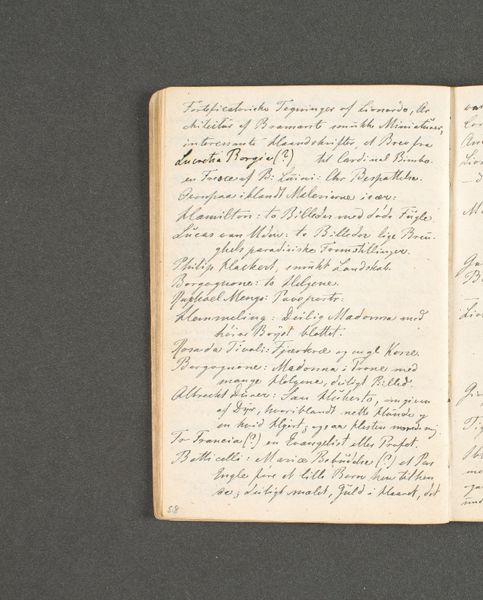 Fortificatoriske Tegninger af Lionardo, Ar
chitectur af Bramante smukke Miniaturer,
interessante Haandskrifter, et Brev fra
Lucretia Borgia (?) til Cardinal Bembo.
en Fresco af B: Luini: Chr Bespottelse.
Ovenpaa iblandt Malerierne især:
Hamilton: to Billeder med døde Fugle.
Lucas van Uden: to Billeder lige Breu-
ghels paradisiske Fremstillinger.
Philip Hackert, smukt Landskab.
Borgognone: to Helgene.
Raphael Mengs: Pave
Hemmeling: Deilig Madonna med
høire Bryst blottet.
Rosa da Tivoli: Fjærkræ og en gl Kone.
Borgognone: Madonna i Trone med
mange Helgene, deiligt Billed.
Albrecht Dürer: San Huberto, omgiven
af Dyr, hvoriblandt nette Hunde og
en hvid Hjort, ogsaa Hesten
To Francia (?) en Evangelist eller Profet.
Botticelli: Mariæ Bebudelse (?) et Par
Engle føre et lille Barn hen til hen
de; deiligt malet, Guld i Haaret, det
58